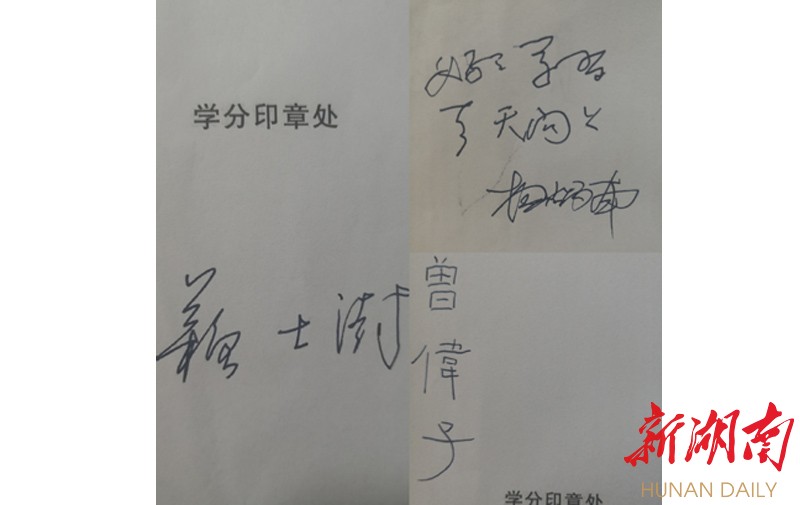 学分印章处
好好学习
天天向上
杨炳南
曾
偉
子
学分印章处
新湖南
HUNAN DAILY